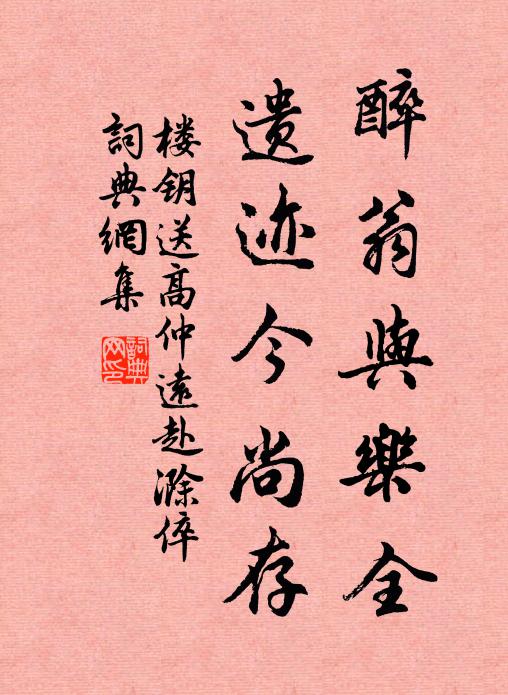 醉翁與樂全
遗迹今尚存
楼钥送高仲遠赴滁倅
詞典網集
詞典网印